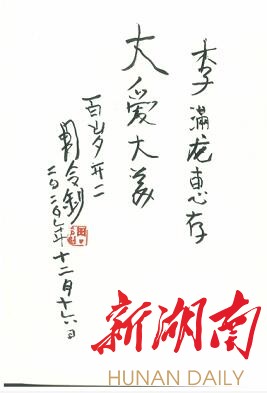 李滿惠存
大愛大美
百岁开二
周令钊
二〇二〇年十二月十六日
新湖南
HUNAN DAILY